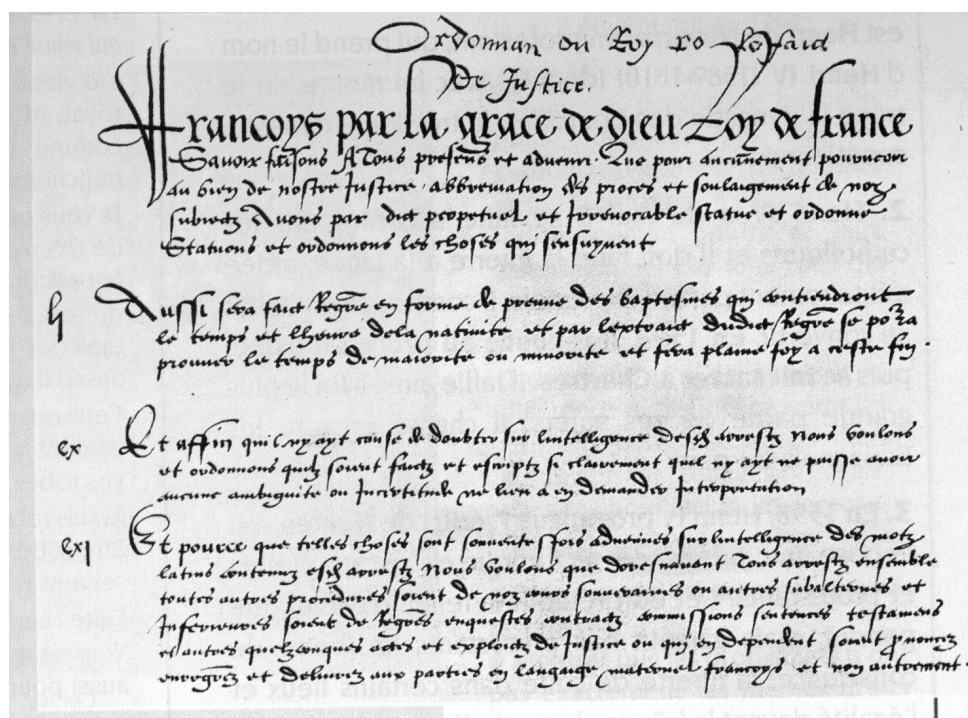 Ordonnan du Roy
De Justice.
Francoys par la grace de dieu Roy de france
Savoir faisons A Tous presens et advenir. Que pour aucunement pourveoir
au bien de nostre Justice, abbreviation des proces et soulagement de noz
subiectz Avons par edict perpetuel et Irrevocable statue et ordonne
Statuons et ordonnons les choses qui sensuyvent
lj Aussi sera faict Regre en forme de preuve des baptesmes qui contiendront
le temps et lheure dela nativite et par lextraict dudict Regre se pora
prouver le temps de maiorite ou minorite et fera plaine foy a ceste fin
cx Et affin quil ny ayt cause de doubter sur lintelligence desd arrestz Nous voulons
et ordonnons quilz soient faictz et escriptz si clairement quil ny ayt ne puisse avoir
aucune ambiguite ou Incertitude ne lieu a en demander Interpretation
cxj Et pource que telles choses sont souventesfois advenues sur lintelligence des motz
latins contenuz esd arrestz Nous voulons que doresnavant tous arrestz ensemble
toutes autres procedures soient de noz cours souveraines ou autres subalternes et
Inferieures soient de Regres enquestes contractz commissions sentences testamens
et autres quelzconques actes et exploictz de Justice ou qui en dependent soient prononcez
enregrez et delivrez aux parties en langage maternel francoys et non autrement